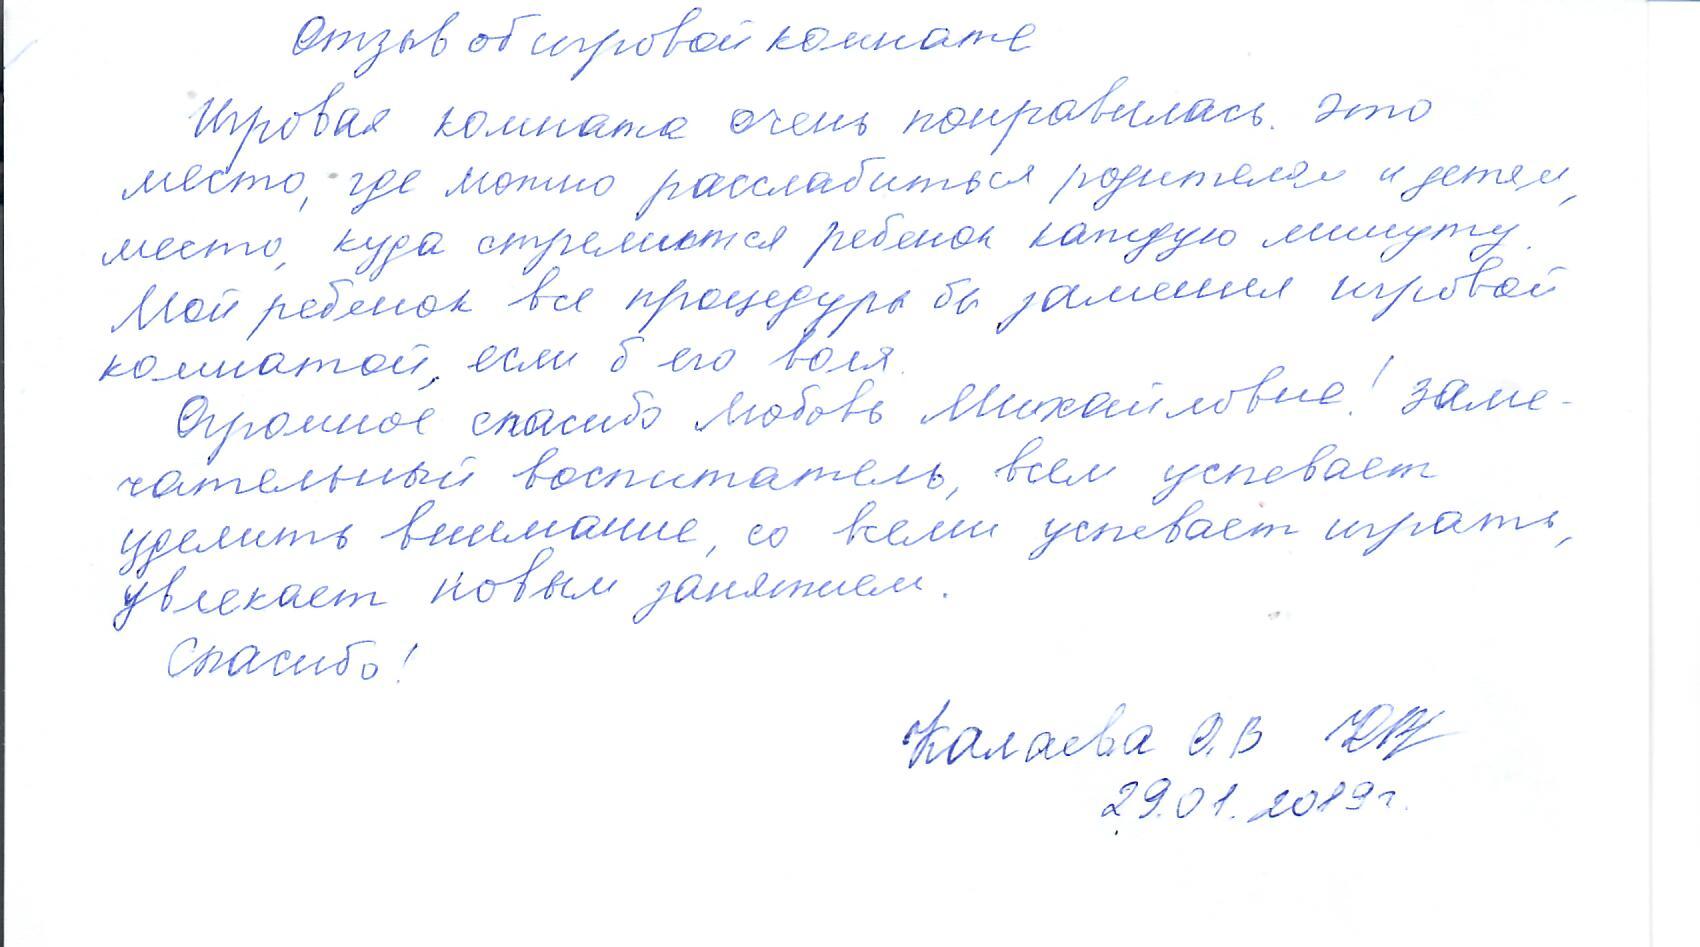 Отзыв об игровой комнате
Игровая комната очень понравилась. Это
место, где можно расслабиться родителям и детям,
место, куда стремится ребенок каждую минуту.
Мой ребенок все процедуры бы заменил игровой
комнатой, если б его воля.
Огромное спасибо Любовь Михайловне! Заме-
чательный воспитатель, всем успевает
уделить внимание, со всеми успевает играть,
увлекает новым занятием.
Спасибо!
Калаева О.В
29.01.2019г.